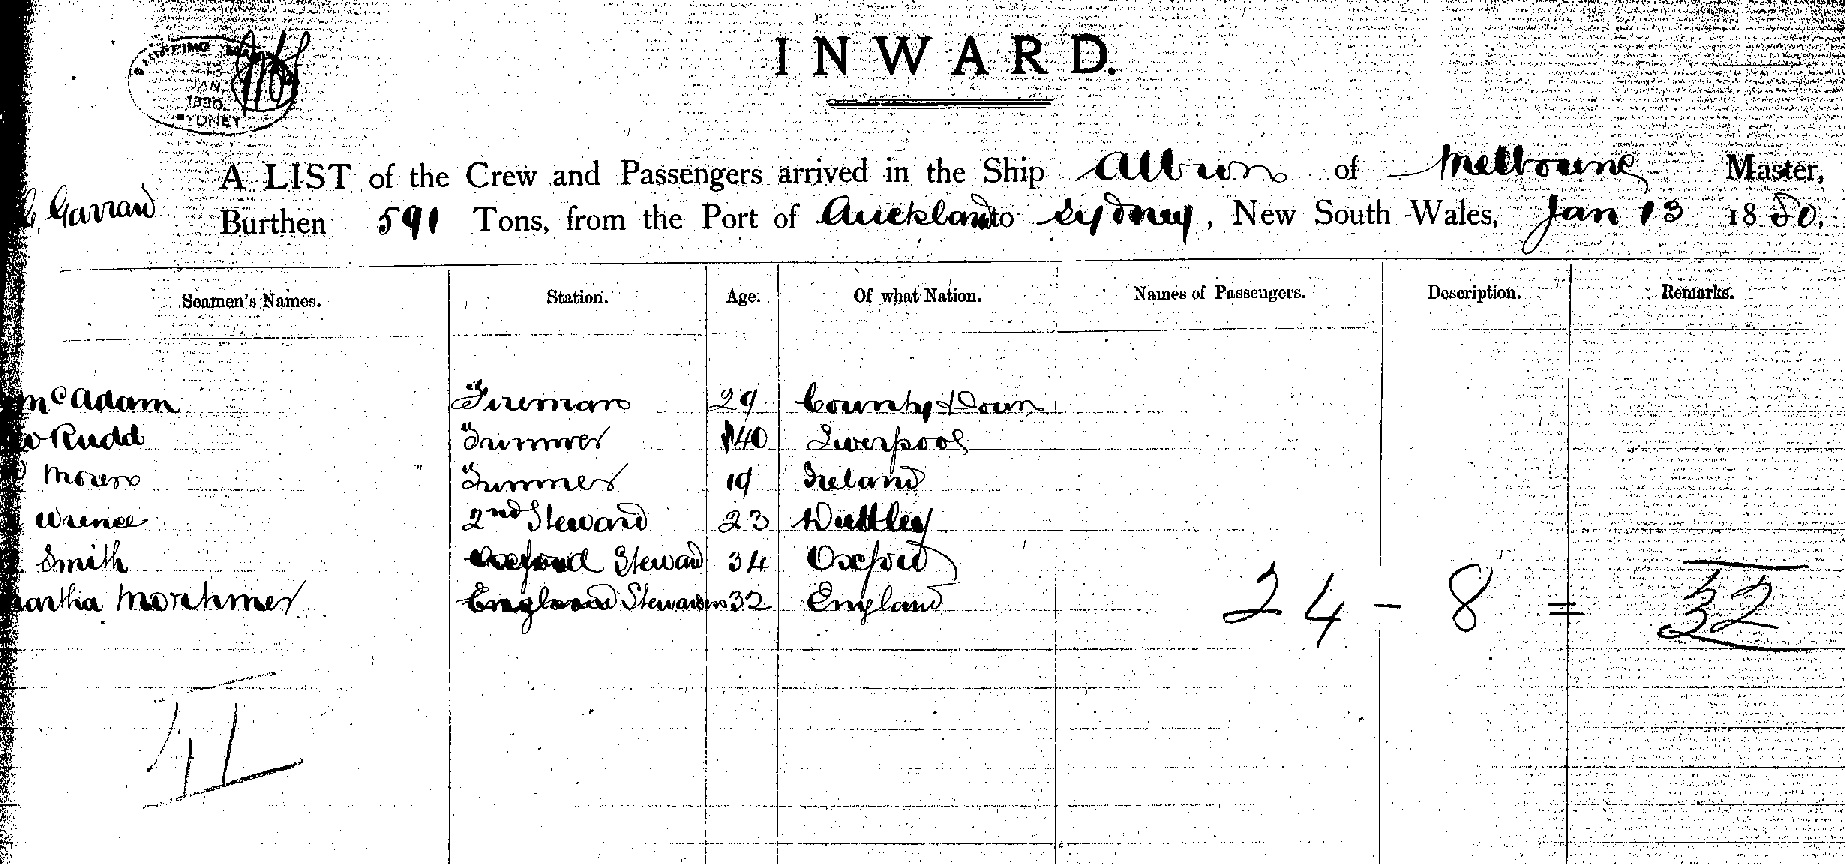 SHIPPING
JAN
1880
SYDNEY
INWARD.
A LIST of the Crew and Passengers arrived in the Ship Albion of Melbourne Master,
Garrard Burthen 591 Tons, from the Port of Auckland to Sydney, New South Wales, Jan 13 1880,
Seamen's Names. Station. Age. Of what Nation. Names of Passengers. Description. Remarks.
McAdam Fireman 29 County Down
Rudd Trimmer 40 Liverpool
Moren " Trimmer 19 Ireland
Wrence 2nd Steward 23 Dudley
Smith Steward 34 Oxford
Martha Mortimer 32 England
24 - 8 = 32
41